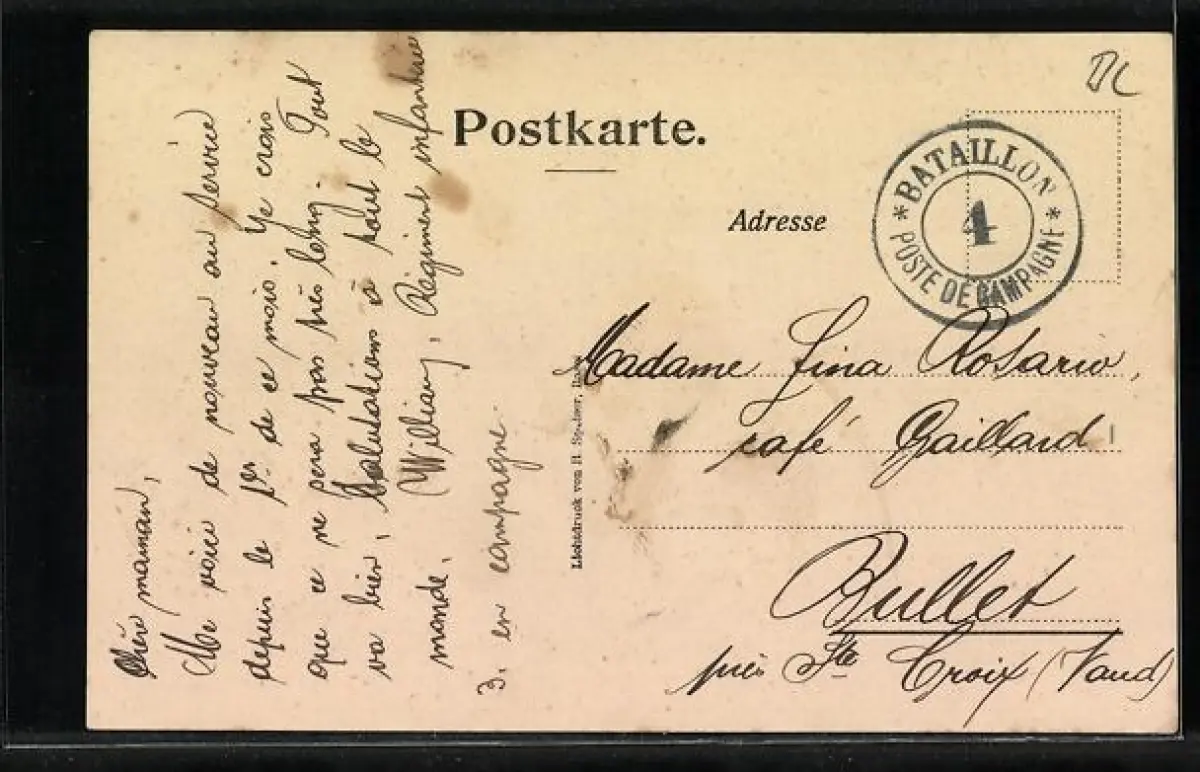 Chère maman,
Me voici de nouveau au service
depuis le 1er de ce mois. Je crois
que ce ne sera pas très long. Tout
va bien, Salutations à tout le
monde. William, Régiment infanterie
3. en campagne.
Postkarte.
Adresse
BATAILLON
4
POSTE DE CAMPAGNE
Madame Lina Rosario,
café Gaillard
Bullet
près Ste Croix (Vaud)
Lichtdruck von H.